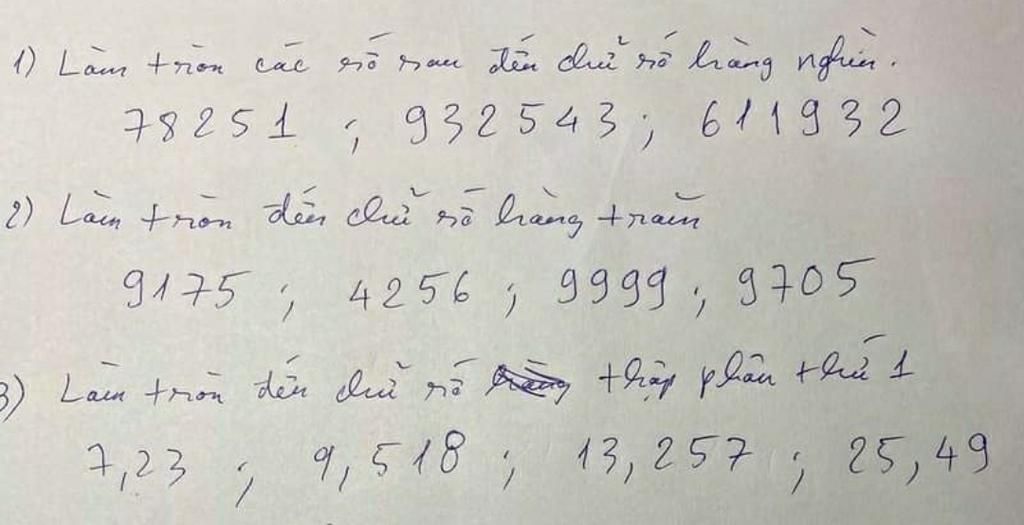 1) Làm tròn các số sau đến chữ số hàng nghìn.
78251 ; 932543 ; 611932
2) Làm tròn đến chữ số hàng trăm
9175 ; 4256 ; 9999 ; 9705
3) Làm tròn đến chữ số thập phân thứ 1
7,23 ; 9,518 ; 13,257 ; 25,49